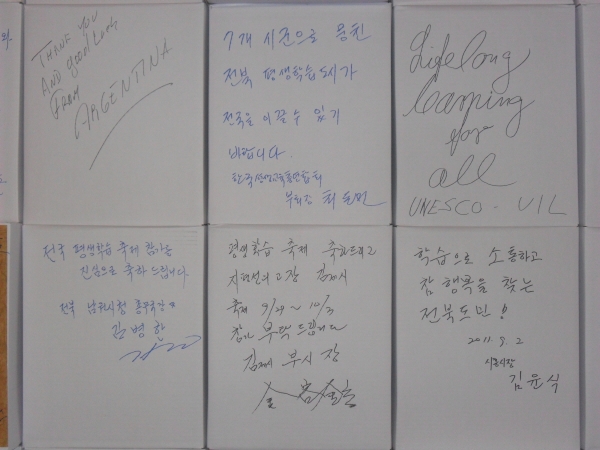 THANK YOU
AND good Luck
FROM
ARGENTINA
7개 시군으로 뭉친
전북 평생학습도시가
전국을 이끌 수 있기
바랍니다.
부회장
Lifelong
learning
for
all
UNESCO - UIL
전국 평생학습 축제 참가를
진심으로 축하 드립니다.
전북 남원시청 총무국장
김병학
평생학습 축제 축하드리고
지평선의 고장 김제시
축제 9/29 ~ 10/3
참가 부탁드립니다
김제시 부시장
학습으로 소통하고
참 행복을 찾는
전북도민!
2011. 9. 2
시흥시장
김윤식